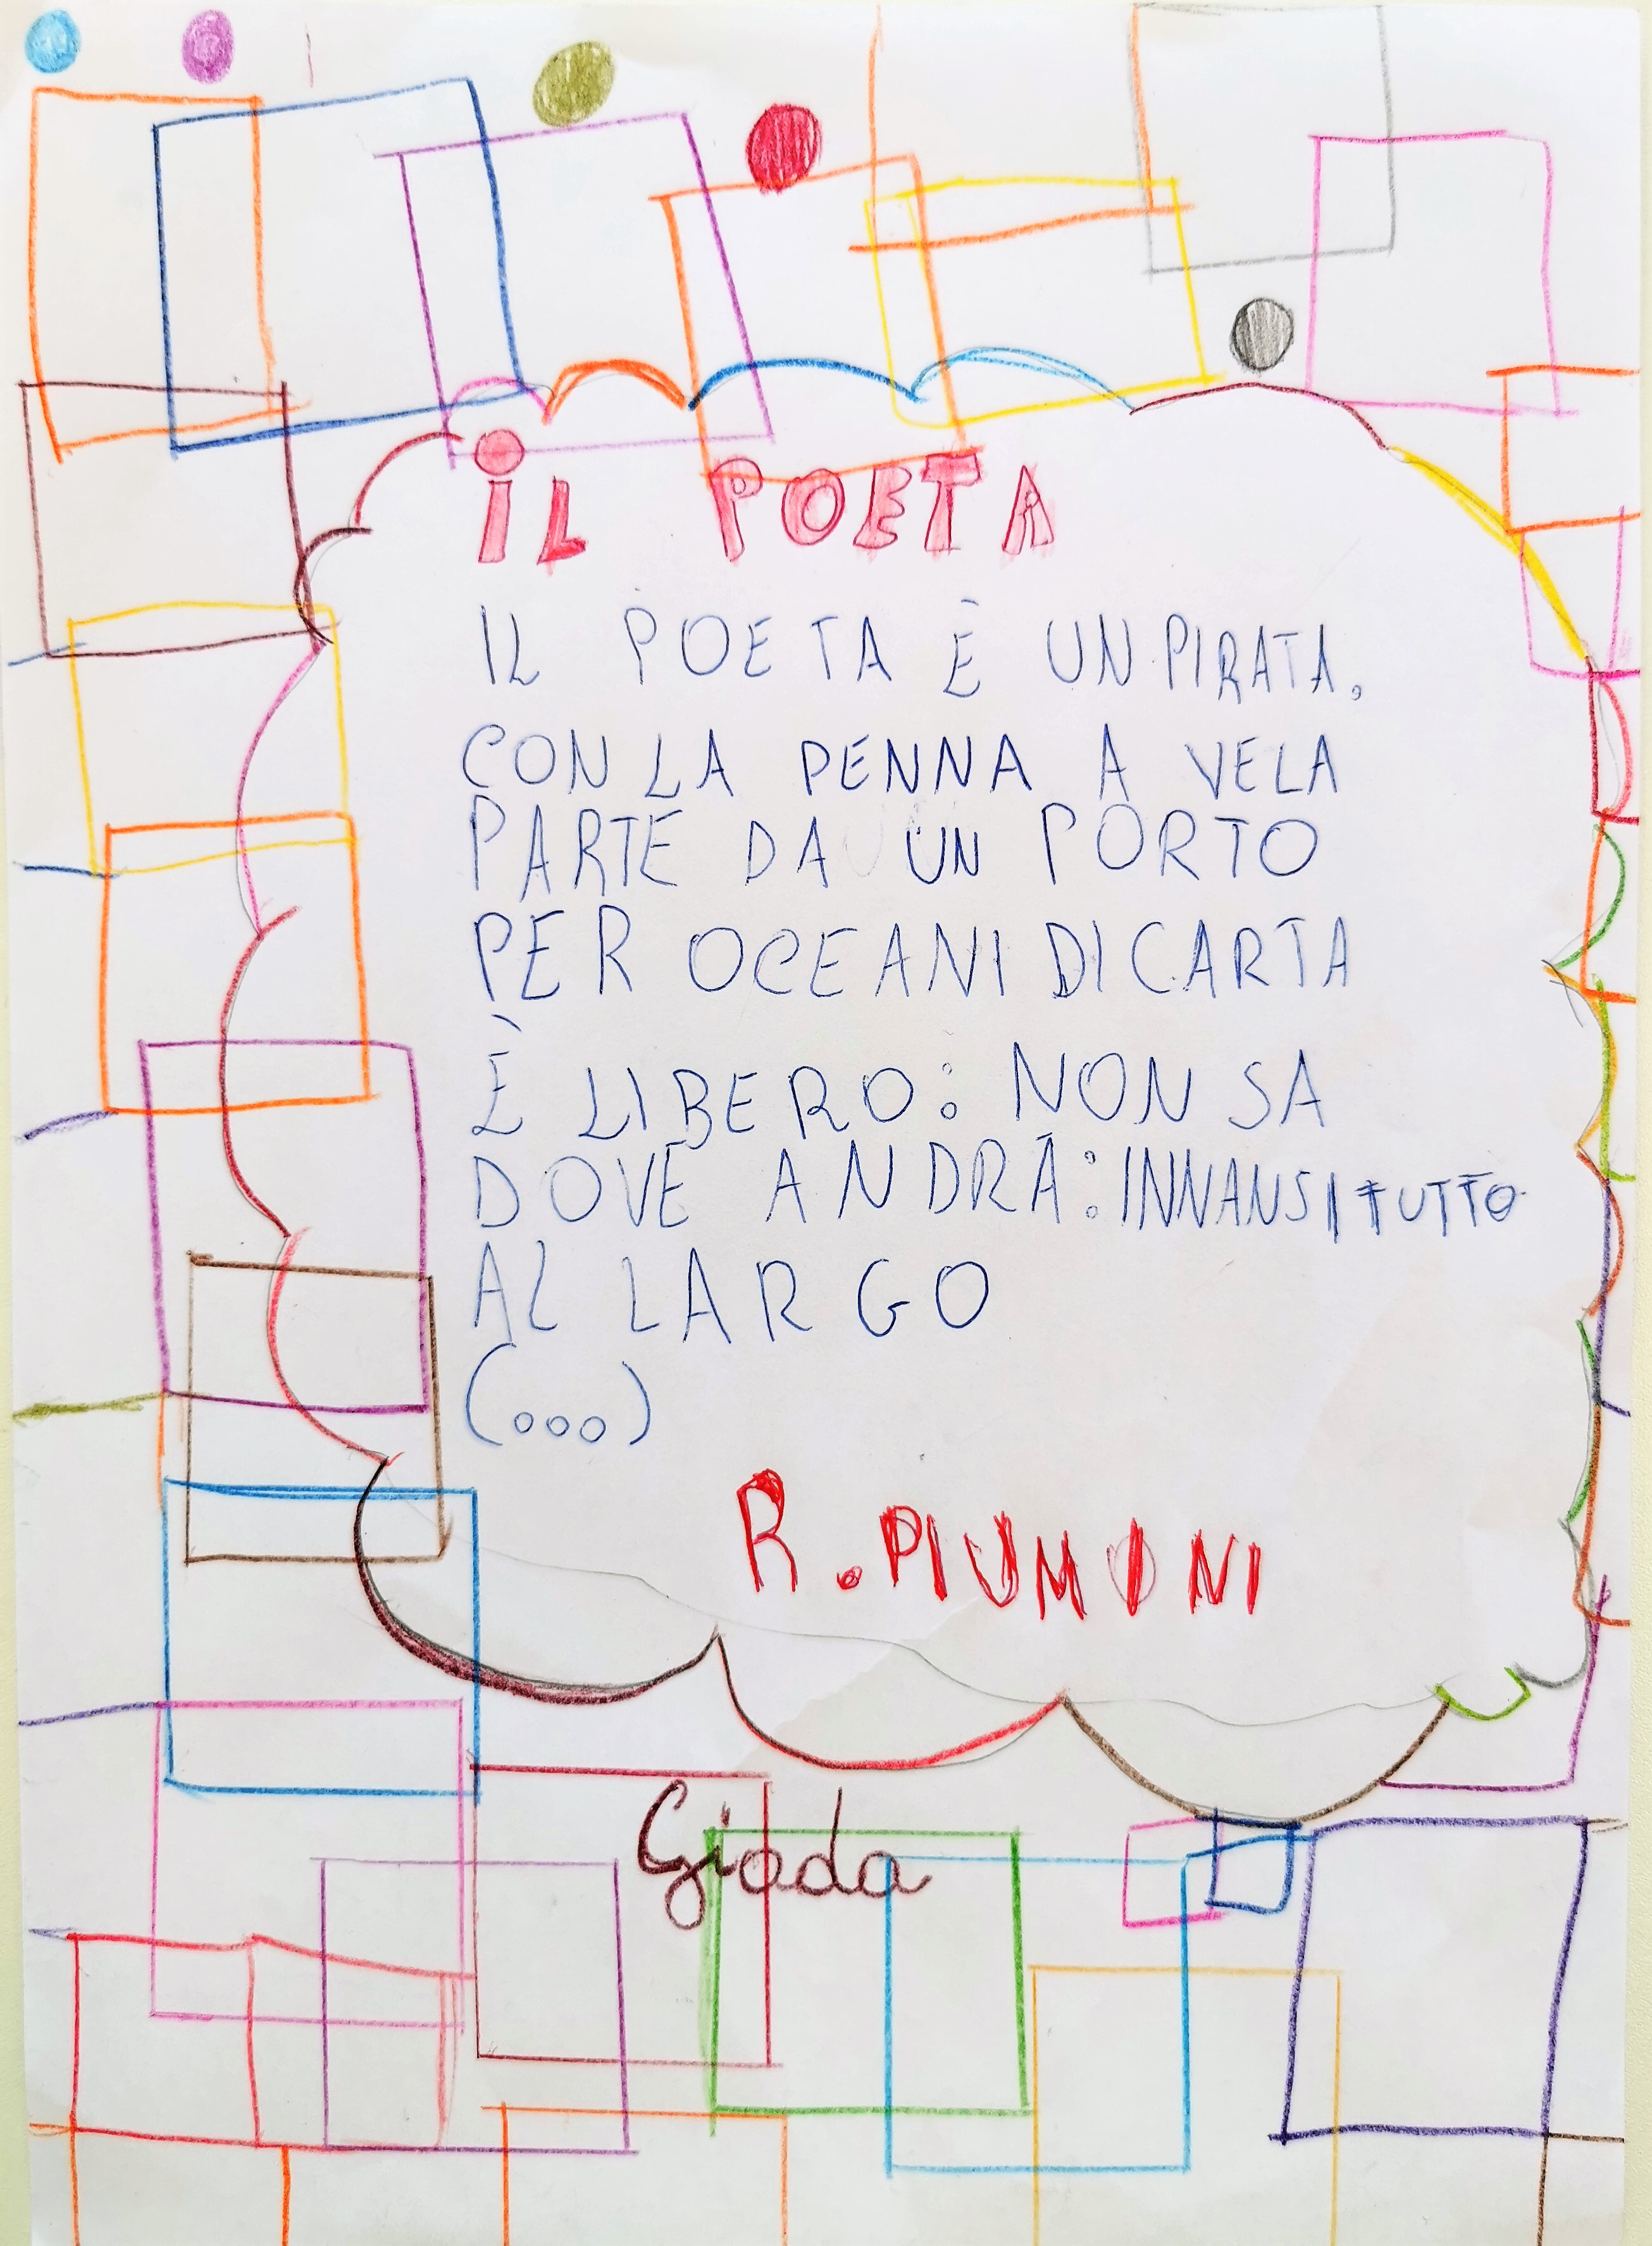 iL POETA
IL POETA È UN PIRATA.
CON LA PENNA A VELA
PARTE DA UN PORTO
PER OCEANI DI CARTA
È LIBERO: NON SA
DOVE ANDRÀ: INNANSITUTTO
AL LARGO
(...)
R. PIUMINI
Giada